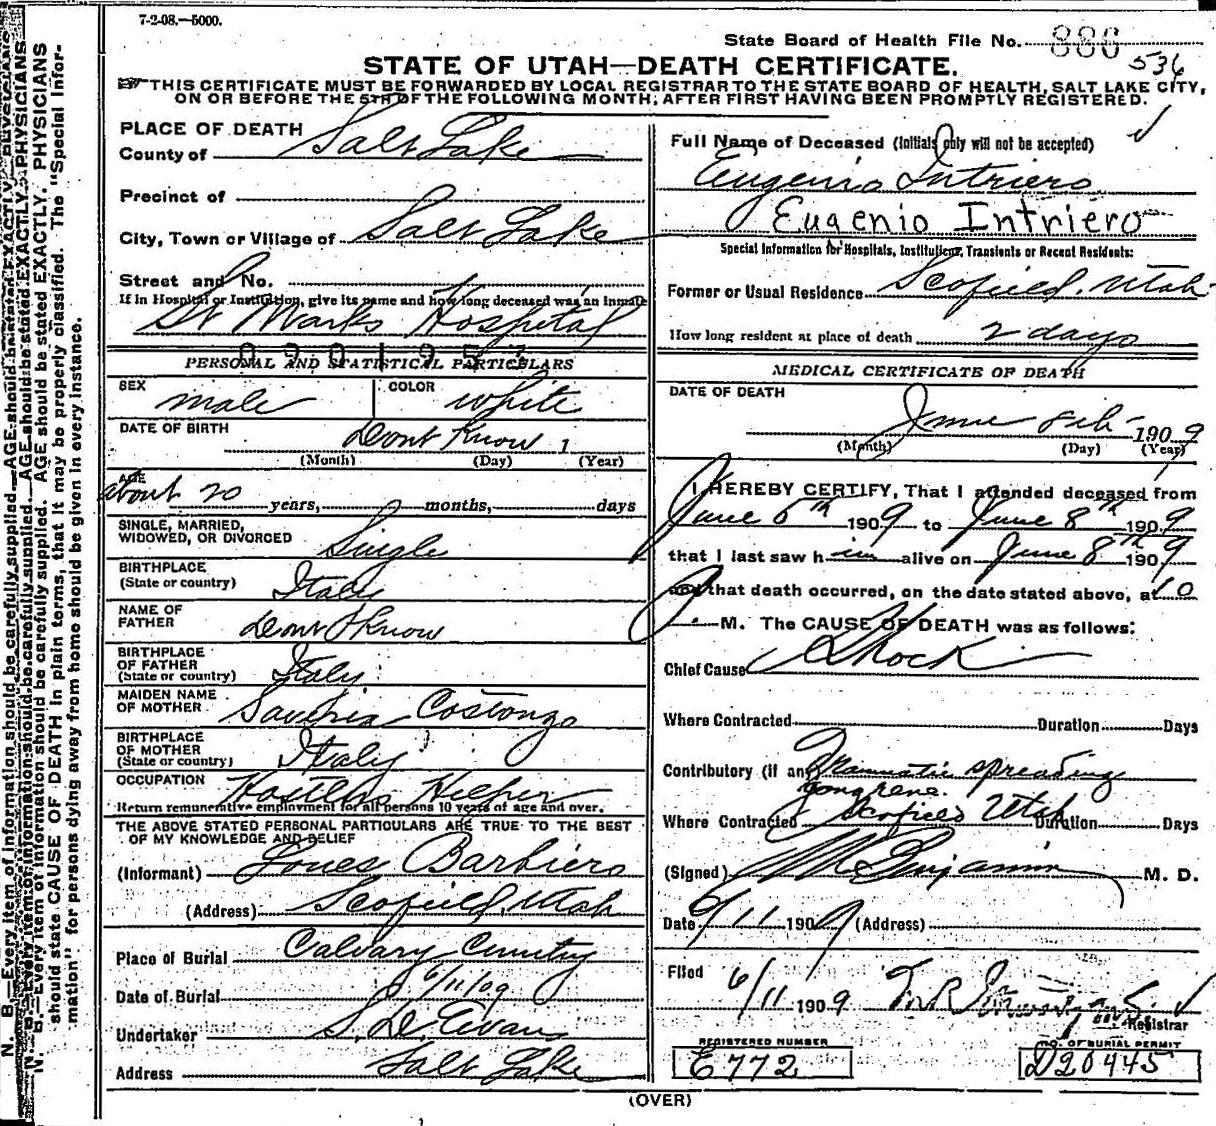 7-2-08.—5000.
State Board of Health File No. 886
536
STATE OF UTAH—DEATH CERTIFICATE.
THIS CERTIFICATE MUST BE FORWARDED BY LOCAL REGISTRAR TO THE STATE BOARD OF HEALTH, SALT LAKE CITY,
ON OR BEFORE THE 5TH OF THE FOLLOWING MONTH, AFTER FIRST HAVING BEEN PROMPTLY REGISTERED.
PLACE OF DEATH
County of Salt Lake
Precinct of
City, Town or Village of Salt Lake
Street and No.
If in Hospital or Institution, give its name and how long deceased was an inmate
St Marks Hospital
0901957
PERSONAL AND STATISTICAL PARTICULARS
SEX male COLOR white
DATE OF BIRTH Dont Know 1
(Month) (Day) (Year)
AGE about 20 years, months, days
SINGLE, MARRIED,
WIDOWED, OR DIVORCED Single
BIRTHPLACE
(State or country) Italy
NAME OF
FATHER dont Know
BIRTHPLACE
OF FATHER
(State or country) Italy
MAIDEN NAME
OF MOTHER Saveria Costongo
BIRTHPLACE
OF MOTHER
(State or country) Italy
OCCUPATION Helper
Return remunerative employment for all persons 10 years of age and over.
THE ABOVE STATED PERSONAL PARTICULARS ARE TRUE TO THE BEST
OF MY KNOWLEDGE AND BELIEF
(Informant) Barbiero
(Address) Scofield, Utah
Place of Burial Calvary Cemetery
Date of Burial 6/11/09
Undertaker S. D. Evans
Address Salt Lake
Full Name of Deceased (Initials only will not be accepted)
Eugenio Intriero
Eugenio Intriero
Special Information for Hospitals, Institutions, Transients or Recent Residents:
Former or Usual Residence Scofield, Utah
How long resident at place of death 2 days
MEDICAL CERTIFICATE OF DEATH
DATE OF DEATH
June 8th 1909
(Month) (Day) (Year)
I HEREBY CERTIFY, That I attended deceased from
June 6th 1909 to June 8th 1909
that I last saw him alive on June 8th 1909
and that death occurred, on the date stated above, at 10
P. M. The CAUSE OF DEATH was as follows:
Chief Cause Shock
Where Contracted Duration Days
Contributory (if any) Traumatic spreading
gangrene.
Where Contracted Scofield Utah Duration Days
(Signed) M. D.
Date 6/11 1909 (Address)
Filed 6/11 1909
Registrar
REGISTERED NUMBER
E772
NO. OF BURIAL PERMIT
D20445
(OVER)
N. B.—Every item of information should be carefully supplied. AGE should be stated EXACTLY. PHYSICIANS
should state CAUSE OF DEATH in plain terms, that it may be properly classified. The "Special Infor-
mation" for persons dying away from home should be given in every instance.